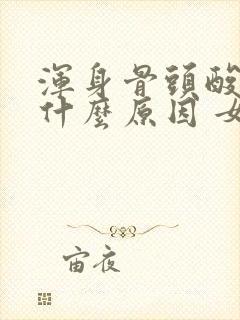 渾身骨頭酸
什麼原因 女
宙夜